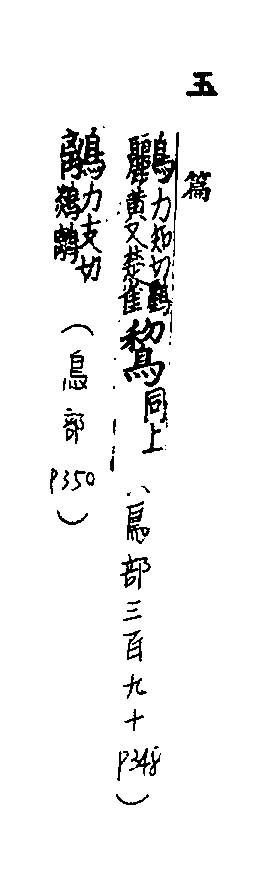 五篇
鸝力知切鸝黃又楚雀鵹同上（鳥部三百九十 P348）
力支切（鳥部 P350）